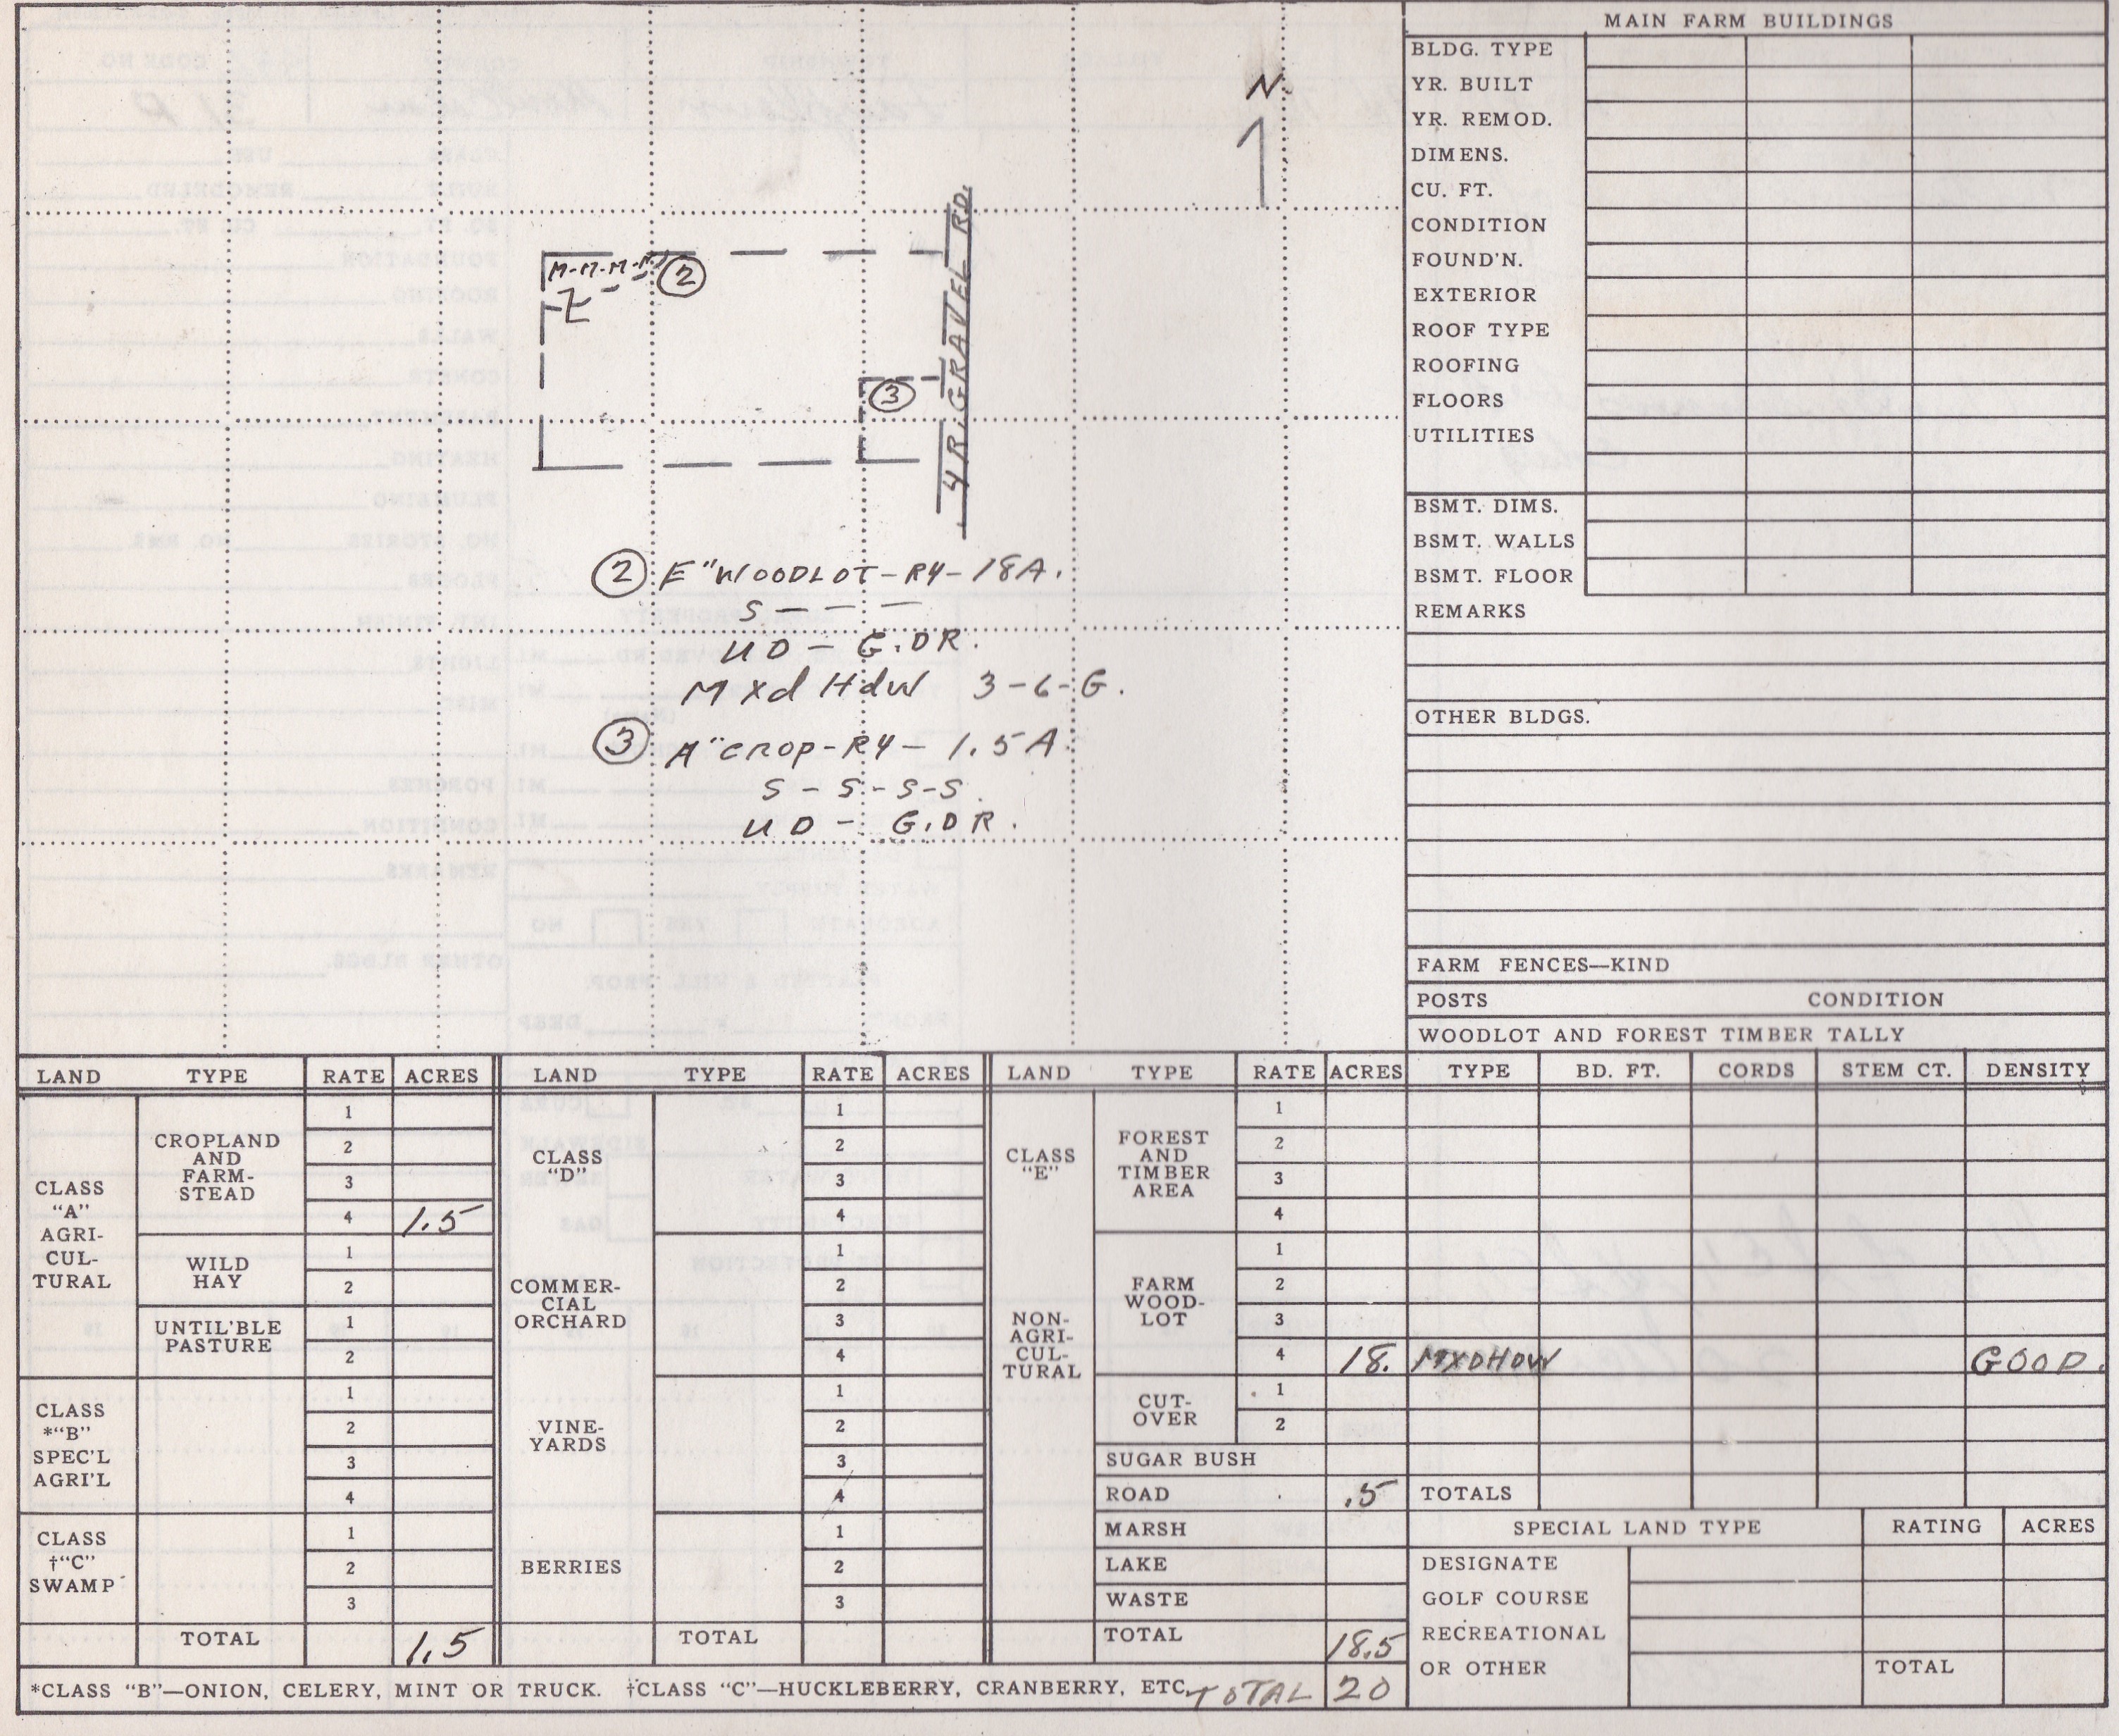 N.
4 R. GRAVEL RD.
M-M-M-M
2
3
2 E" WOODLOT - R4 - 18A.
S — — —
UD — G.DR.
Mxd Hdw 3-6-G.
3 A" CROP - R4 - 1.5A.
S - S - S - S.
UD - G.DR.
MAIN FARM BUILDINGS
BLDG. TYPE
YR. BUILT
YR. REMOD.
DIMENS.
CU. FT.
CONDITION
FOUND'N.
EXTERIOR
ROOF TYPE
ROOFING
FLOORS
UTILITIES
BSMT. DIMS.
BSMT. WALLS
BSMT. FLOOR
REMARKS
OTHER BLDGS.
FARM FENCES—KIND
POSTS CONDITION
WOODLOT AND FOREST TIMBER TALLY
LAND TYPE RATE ACRES LAND TYPE RATE ACRES LAND TYPE RATE ACRES TYPE BD. FT. CORDS STEM CT. DENSITY
CLASS
"A"
AGRI-
CUL-
TURAL
CROPLAND
AND
FARM-
STEAD
1
2
3
4 1.5
WILD
HAY
1
2
UNTIL'BLE
PASTURE
1
2
CLASS
*"B"
SPEC'L
AGRI'L
1
2
3
4
CLASS
†"C"
SWAMP
1
2
3
TOTAL 1.5
CLASS
"D"
1
2
3
4
COMMER-
CIAL
ORCHARD
1
2
3
4
VINE-
YARDS
1
2
3
4
BERRIES
1
2
3
TOTAL
CLASS
"E"
NON-
AGRI-
CUL-
TURAL
FOREST
AND
TIMBER
AREA
1
2
3
4
FARM
WOOD-
LOT
1
2
3
4 18. MXDHDW GOOD.
CUT-
OVER
1
2
SUGAR BUSH
ROAD .5
MARSH
LAKE
WASTE
TOTAL 18.5
TOTALS
SPECIAL LAND TYPE RATING ACRES
DESIGNATE
GOLF COURSE
RECREATIONAL
OR OTHER
TOTAL
*CLASS "B"—ONION, CELERY, MINT OR TRUCK. †CLASS "C"—HUCKLEBERRY, CRANBERRY, ETC. TOTAL 20